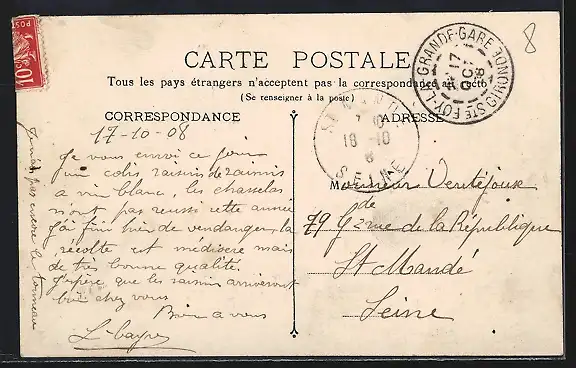 CARTE POSTALE
Tous les pays étrangers n'acceptent pas la correspondance au recto
(Se renseigner à la poste)
CORRESPONDANCE
ADRESSE
17-10-08
Je vous envoi ce jour
un colis raisins de raisins
a vin blanc, les chasselas
n'ont pas reussi cette année
J'ai fini hier de vendanger, la
récolte est médiocre mais
de très bonne qualité.
J'espère que les raisins arriveront
chez vous
Bien a vous
Jamais pas encore le tonneau
Monsieur Ventéjouse
de
79 Gde rue de la République
St Mandé
Seine
GRANDE-GARE
STE FOY-LA-GRANDE
17
OCT
08
ST MANDÉ
18-10
SEINE
10
POS
8